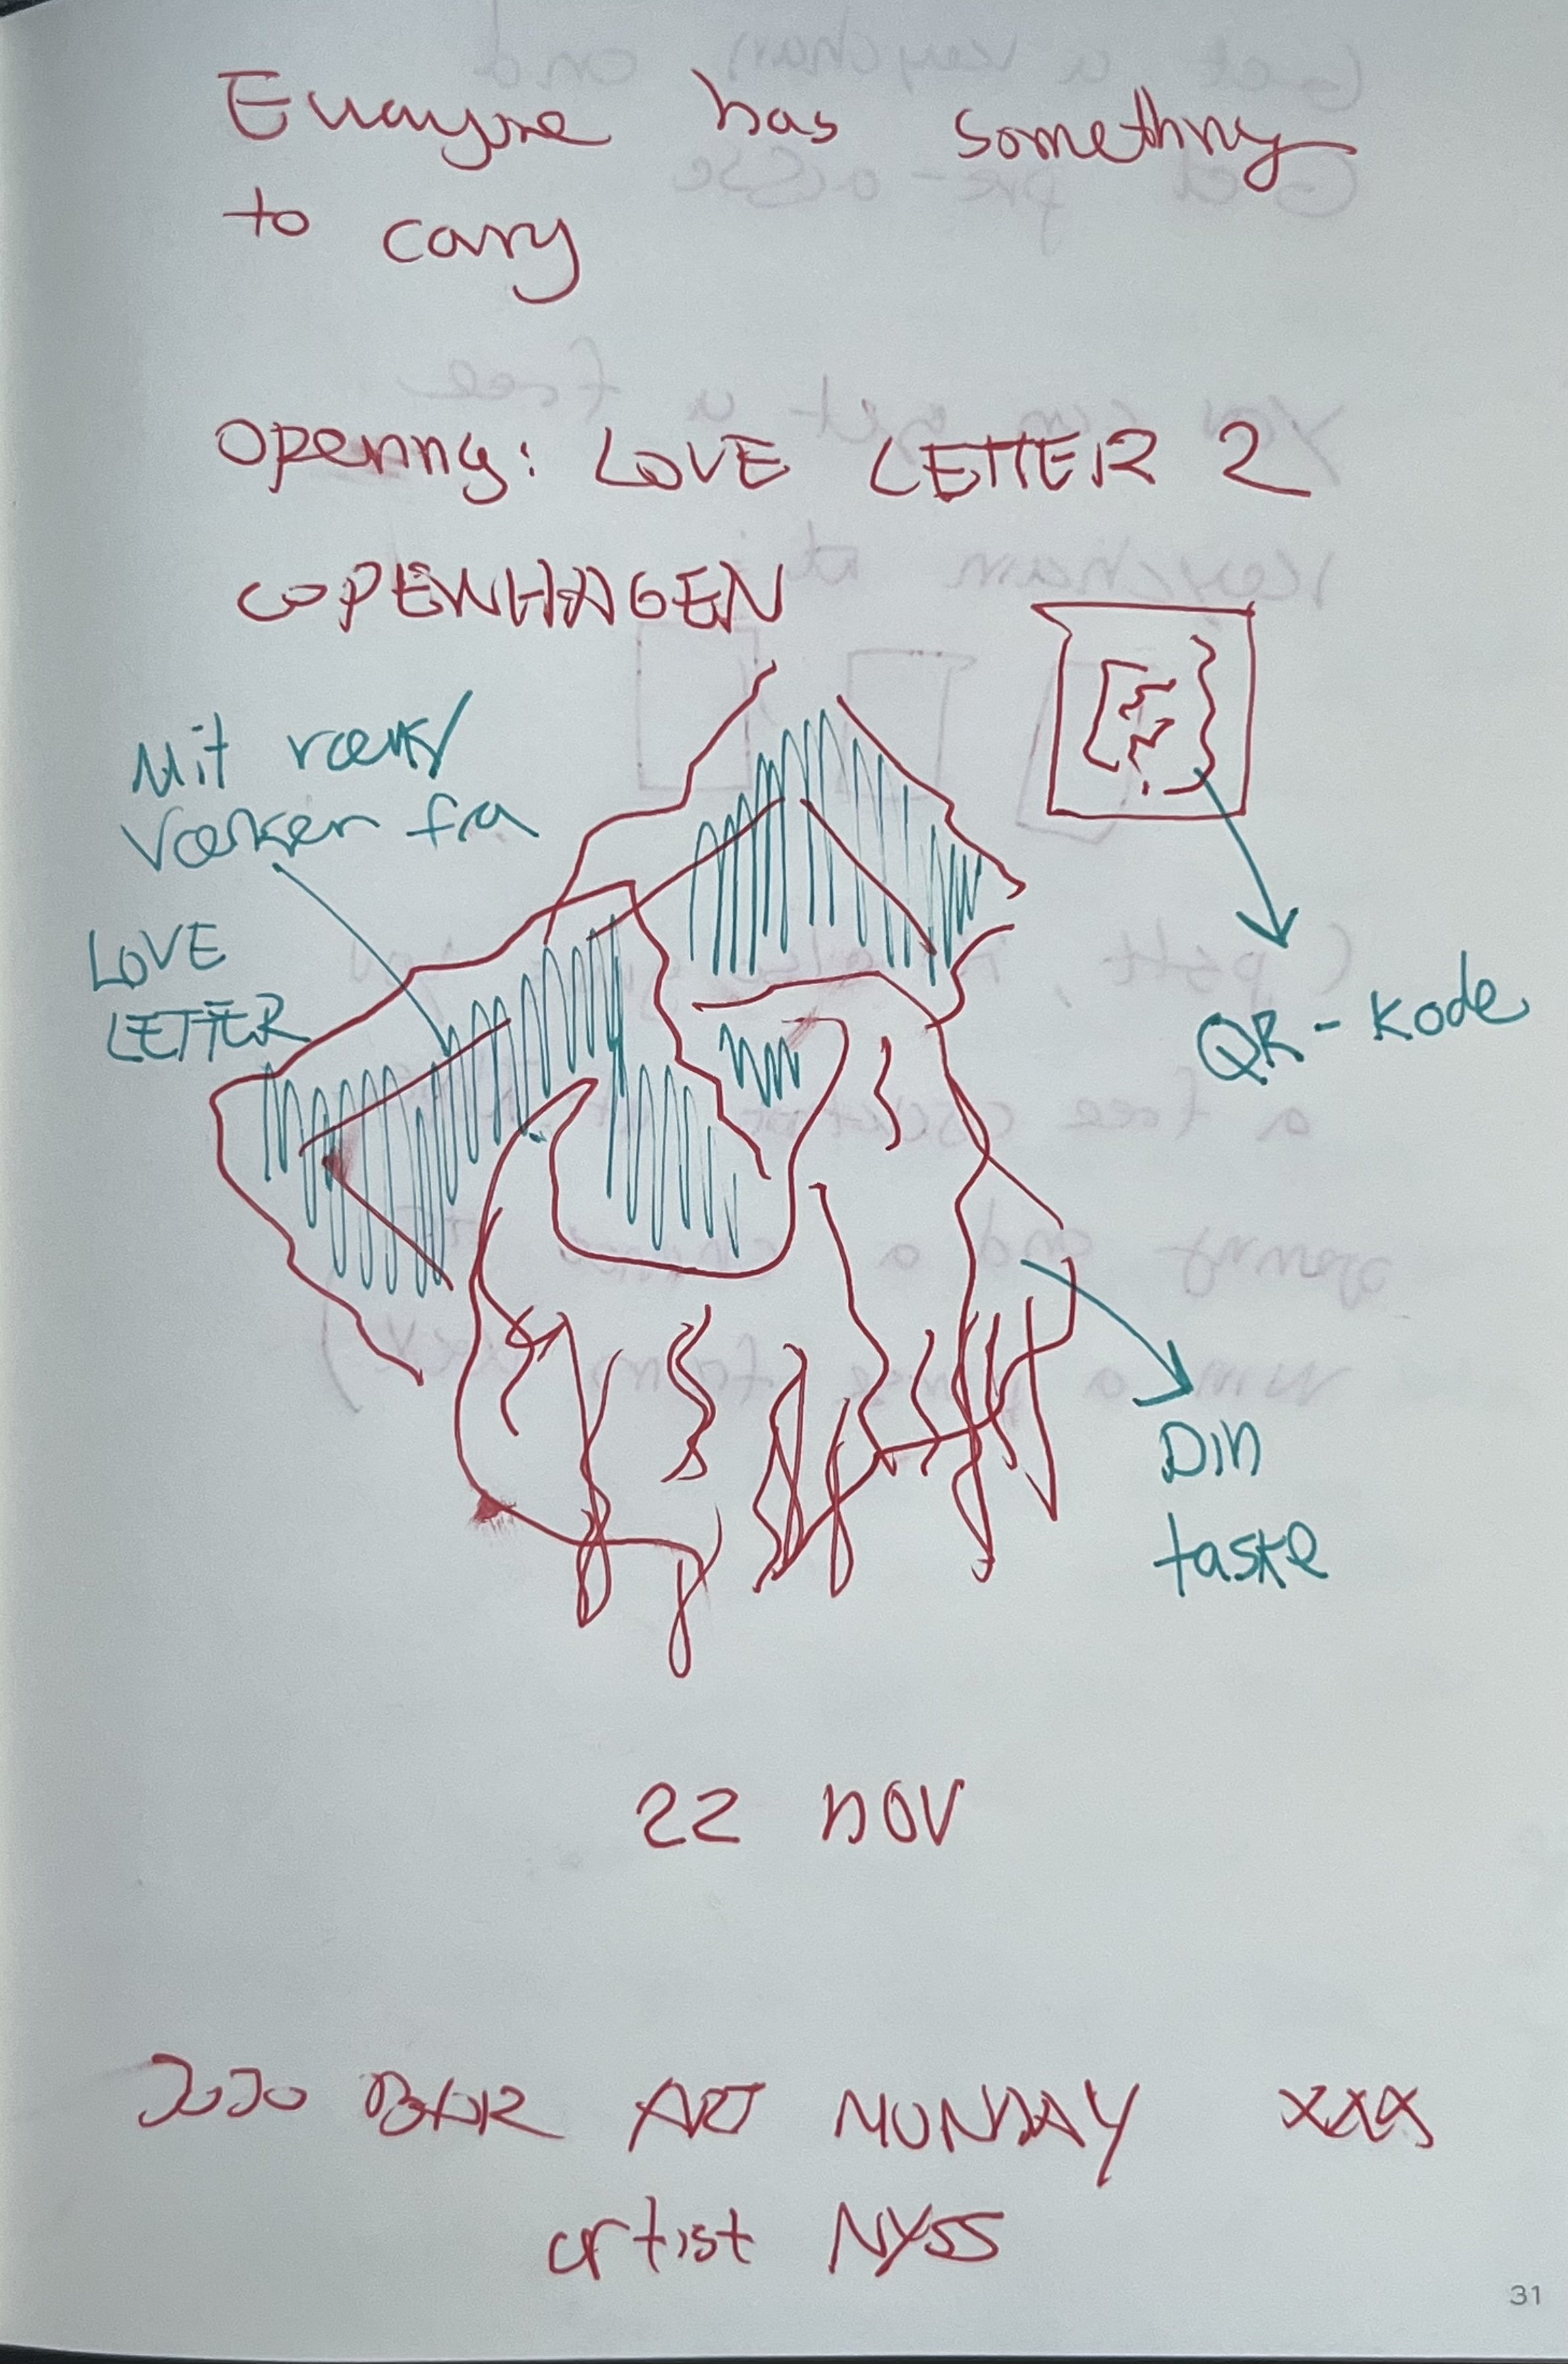 Everyone has something
to cary
Openng: LOVE LETTER 2
COPENHAGEN
Mit værk/
Værker fra
LOVE
LETTER
QR-kode
Din
taske
22 NOV
JOJO BAR ART MONDAY XXX
artist NYSS
31